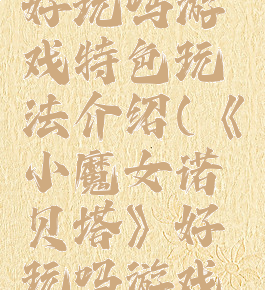 好玩吗游
戏特色玩
法介绍(《
小魔女诺
贝塔》好
玩吗游戏